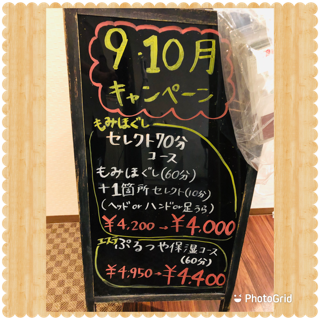 9.10月
キャンペーン
もみほぐし
セレクト70分
コース
もみほぐし(60分)
+1箇所セレクト(10分)
(ヘッドorハンドor足うら)
¥4,200→¥4,000
エステ ぷるつや保湿コース
(60分)
¥4,950→¥4,400
PhotoGrid